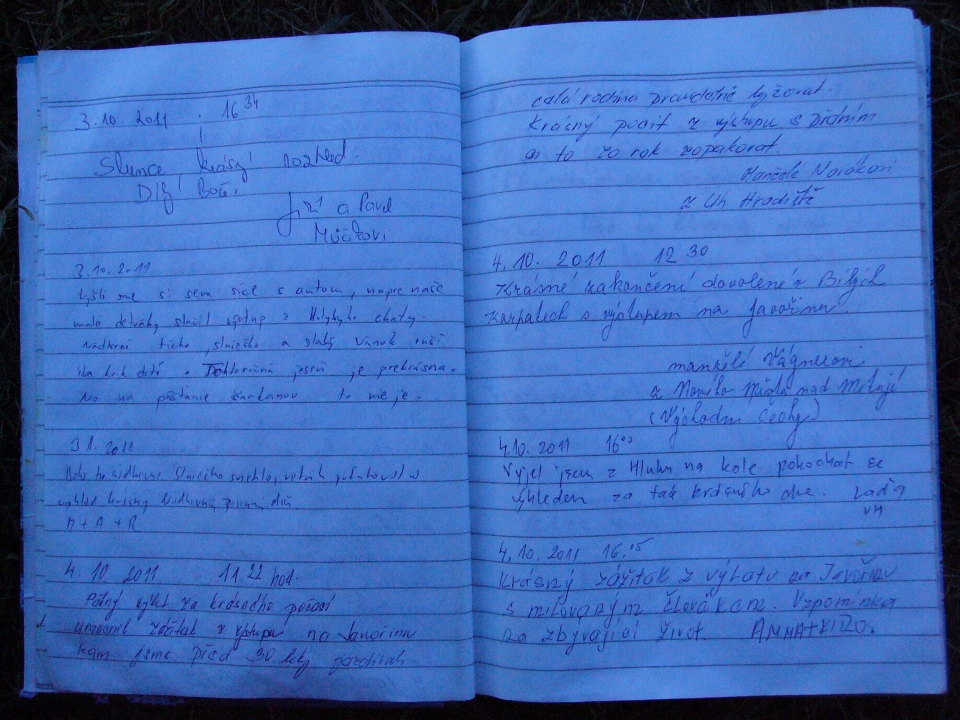 3.10 2011 16 34
Slunce, krásný rozhled.
Díky Bohu.
Jiří a Pavel
Mučkovi
3.10.2011
Vyšli sme si sem síce s autom, no pre naše
malé detváky slavil výstup z Holubyho chaty.
Nádherné ticho, slniečko a slabý vánok ruší
iba krik detí. Tohtoročná jeseň je prekrásna.
No na púšťanie šarkanov to nie je.
3 1. 2011
Bolo to nádherné Slniečko svietilo,
výhľad krásny
A + R
4. 10 2011 11 22 hod.
Pěkný výlet za krásného počasí
umocnil zážitek z výstupu na Javořinu
kam jsme před 30 lety jezdívali
celá rodina pravidelně lyžovat.
Krásný pocit z výstupu s přáním
si to za rok zopakovat.
Manželé Novákovi
z Uh Hradiště
4. 10. 2011 12 30
Krásné zakončení dovolené v Bílých
Karpatech s výstupem na Javořinu.
manželé Vágnerovi
z Nového Města nad Metují
(Východní Čechy)
4.10. 2011 16 00
Vyjel jsem z Hluku na kole pokochat se
výhledem za tak krásného dne. Laďa
VH
4. 10. 2011 16.15
Krásný zážitek z výletu na Javořinu
s milovaným člověkem. Vzpomínka
na zbývající život. ANNA+KIRO.